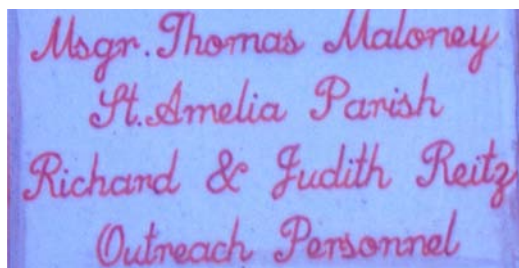 Msgr. Thomas Maloney
St. Amelia Parish
Richard & Judith Reitz
Outreach Personnel